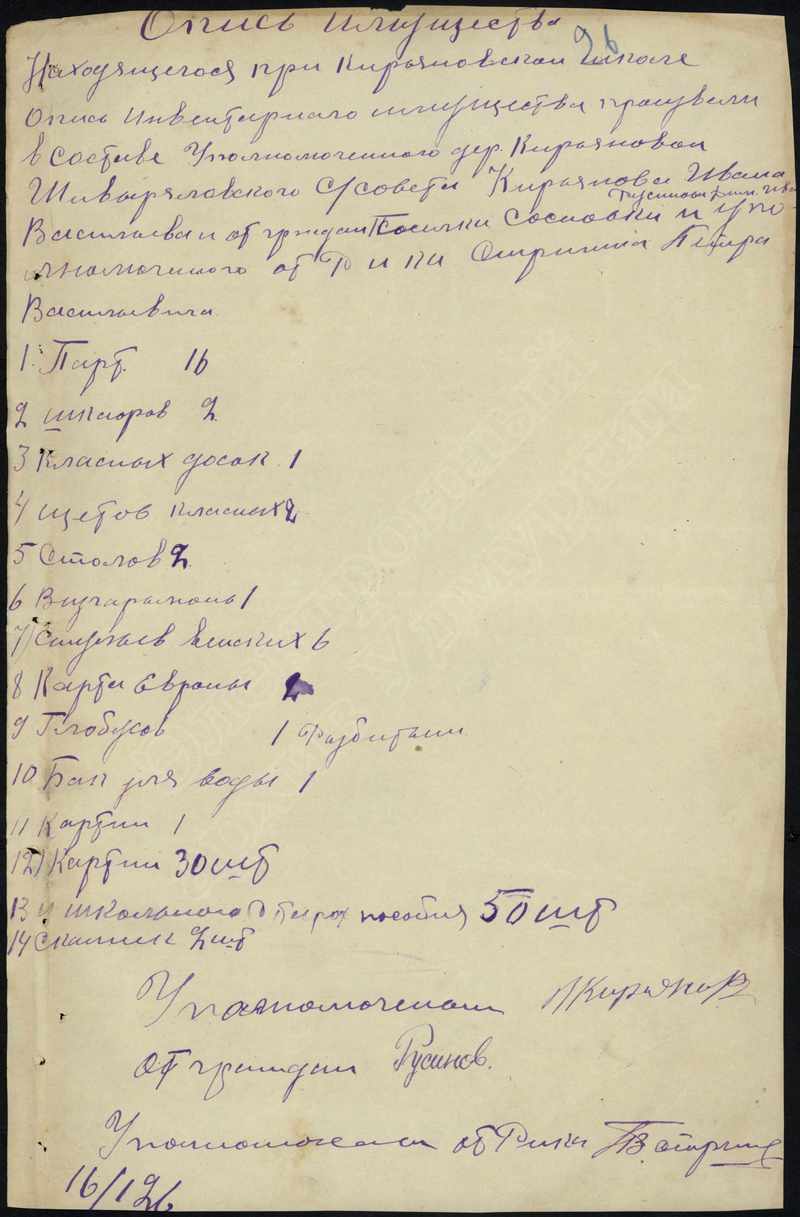 Опись имущества
26
Находящегося при Кирьяновской школе
Опись Инвентарного имущества произвели
в составе Уполномоченного дер. Кирьяновой
Шивыряловского С/совета Кирьянова Ивана
Васильева и от граждан Поселка Сосновки и упо
лномоченного от Рика Петра
Васильевича
1. Парт. 16
2 шкафов 2
3 Класных досак 1
4 щетов класных 2
5 Столов 2
6 1
7) Стульев венских 6
8 Карти Европы 2
9 Глобусов 1 разбитый
10 Бак для воды 1
11 Картин 1
12) Картин 30 шт
13 школьного пособия 50 шт
14 Скамеек 2 шт
Уполномоченый И Кирьянов
от граждан Русинов.
Уполномоченый от Рика ПВ
16/I 26